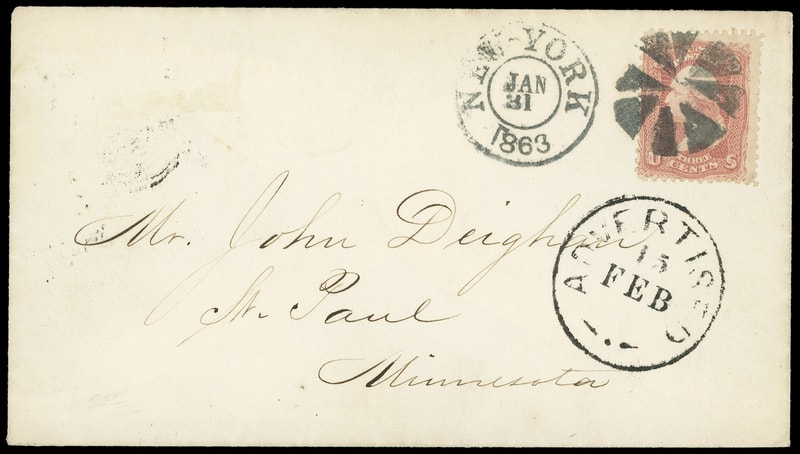 NEW-YORK
JAN
31
1863
U S
THREE
CENTS
Mr. John Deighan
St. Paul
Minnesota
ADVERTISED
15
FEB